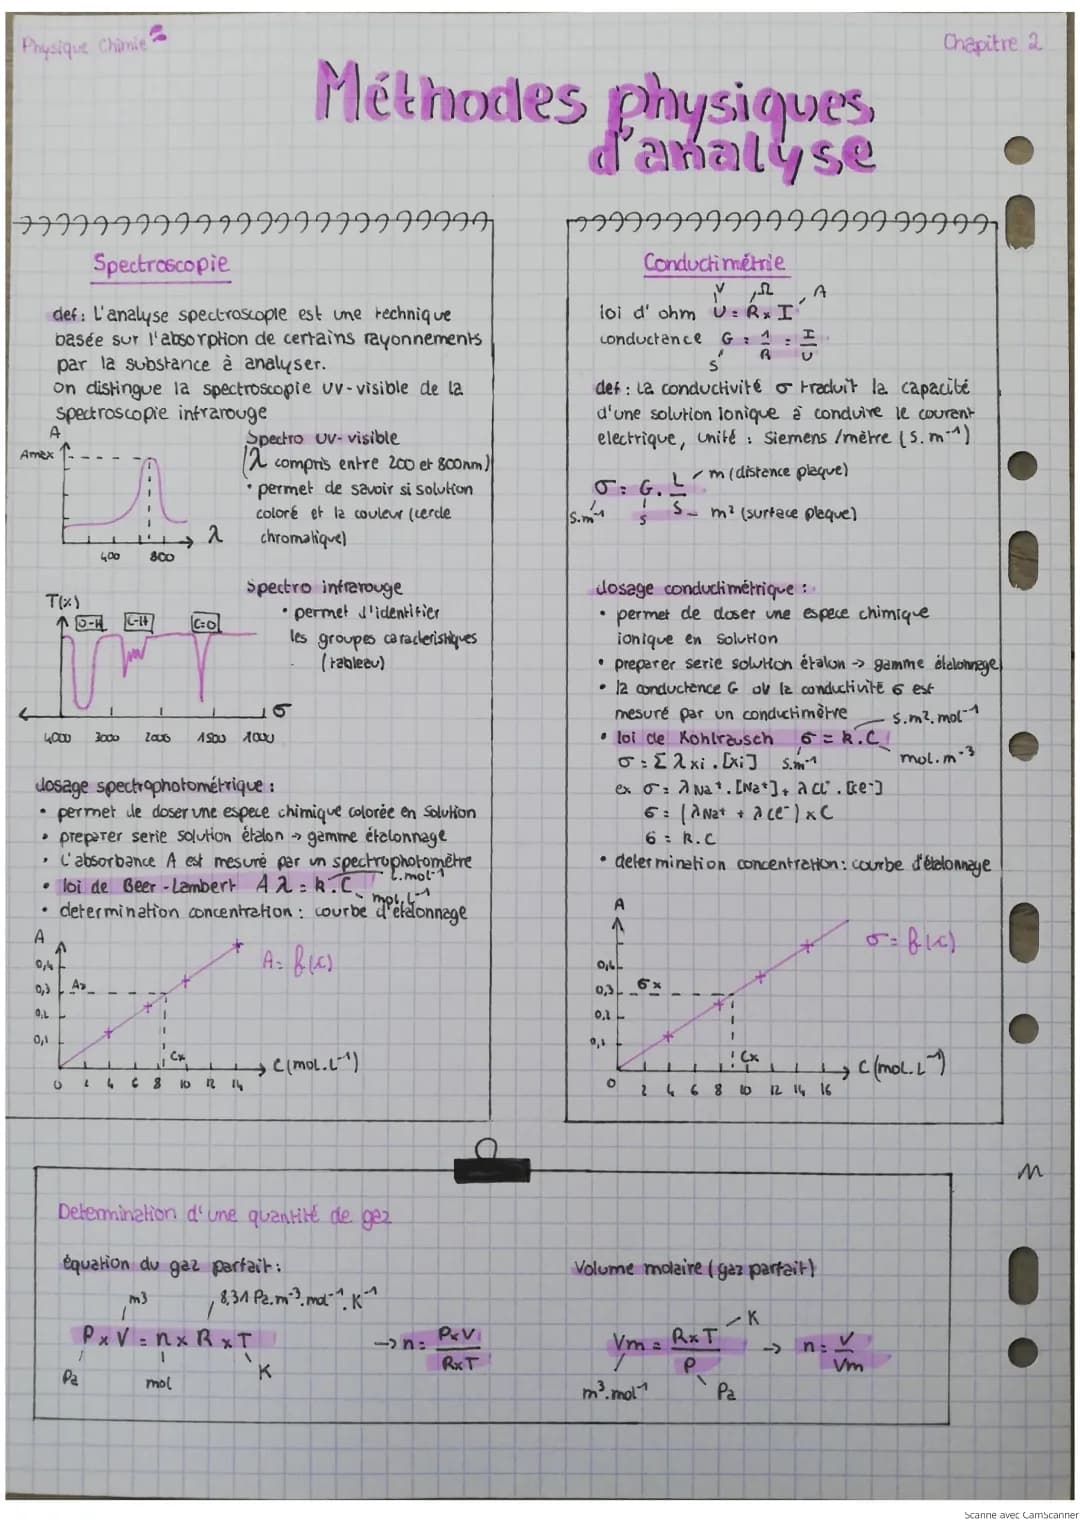 Physique Chimie
Chapitre 2
Méthodes physiques
d'analyse
Spectroscopie
def : L'analyse spectroscopie est une technique
basée sur l'absorption de certains rayonnements
par la substance à analyser.
on distingue la spectroscopie UV-visible de la
spectroscopie infrarouge
A
Amax
400 800
λ
Spectro UV-visible
(λ compris entre 200 et 800nm)
• permet de savoir si solution
coloré et la couleur (cercle
chromatique)
T(%)
O-H C-H C=O
σ
4000 3000 2000 1500 1000
Spectro infrarouge
• permet d'identifier
les groupes caracteristiques
(tableau)
dosage spectrophotométrique :
• permet de doser une espece chimique colorée en solution
• preparer serie solution étalon → gamme étalonnage
• L'absorbance A est mesuré par un spectrophotomètre
• loi de Beer-Lambert Aλ = k.C
L.mol⁻¹
mol.L⁻¹
• determination concentration : courbe d'étalonnage
A
0,4
0,3 Ax
0,2
0,1
Cx
0 2 4 6 8 10 12 14
C (mol.L⁻¹)
A = f(c)
Conductimétrie
V Ω A
loi d'ohm U = R x I
conductance G = 1/R = I/U
S
def : La conductivité σ traduit la capacité
d'une solution ionique à conduire le courant
electrique, unité : Siemens /mètre (S.m⁻¹)
σ = G. L/S
m (distance plaque)
S.m⁻¹ S m² (surface plaque)
dosage conductimétrique :
• permet de doser une espece chimique
ionique en solution
• preparer serie solution étalon → gamme étalonnage
• la conductance G ou la conductivité σ est
mesuré par un conductimètre
S.m².mol⁻¹
• loi de Kohlrausch σ = k.C
mol.m⁻³
σ = Σ λxi.[Xi] S.m⁻¹
ex σ = λNa⁺.[Na⁺] + λCl⁻.[Cl⁻]
σ = (λNa⁺ + λCl⁻) x C
σ = k.C
• determination concentration : courbe d'étalonnage
A
0,4
0,3 σx
0,2
0,1
Cx
0 2 4 6 8 10 12 14 16
C (mol.L⁻¹)
σ = f(c)
Determination d'une quantité de gaz
équation du gaz parfait :
m3 8,31 Pa.m⁻³.mol⁻¹.K⁻¹
P x V = n x R x T → n = PxV/RxT
Pa mol K
Volume molaire (gaz parfait)
K
Vm = RxT/P → n = V/Vm
m³.mol⁻¹ Pa
Scanné avec CamScanner